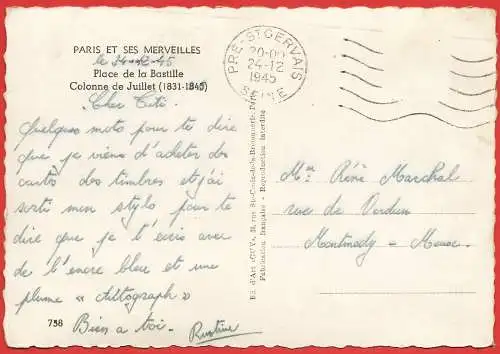 PARIS ET SES MERVEILLES
le 24-12-45
Place de la Bastille
Colonne de Juillet (1831-1840)
Cher Titi
Quelques mots pour te dire
que je viens d'acheter des
cartes des timbres et j'ai
sorti mon stylo pour te
dire que je t'écris avec
de l'encre bleu et une
plume « Autograph »
758
Bien a toi.
PRE-ST GERVAIS
20-00
24-12
1945
SEINE
Fabrication française - Reproduction interdite
Mr René Marchal
rue de Verdun
Montmédy - Meuse.